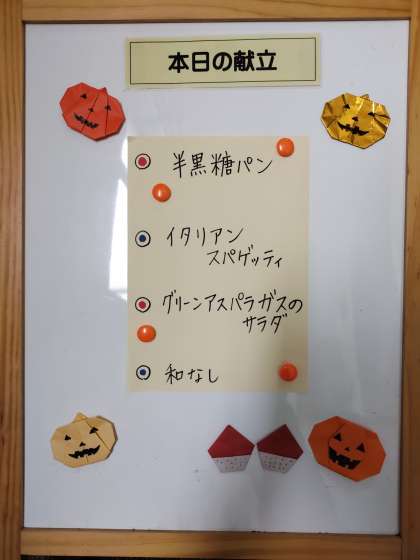 本日の献立
半黒糖パン
イタリアン
スパゲッティ
グリーンアスパラガスの
サラダ
和なし